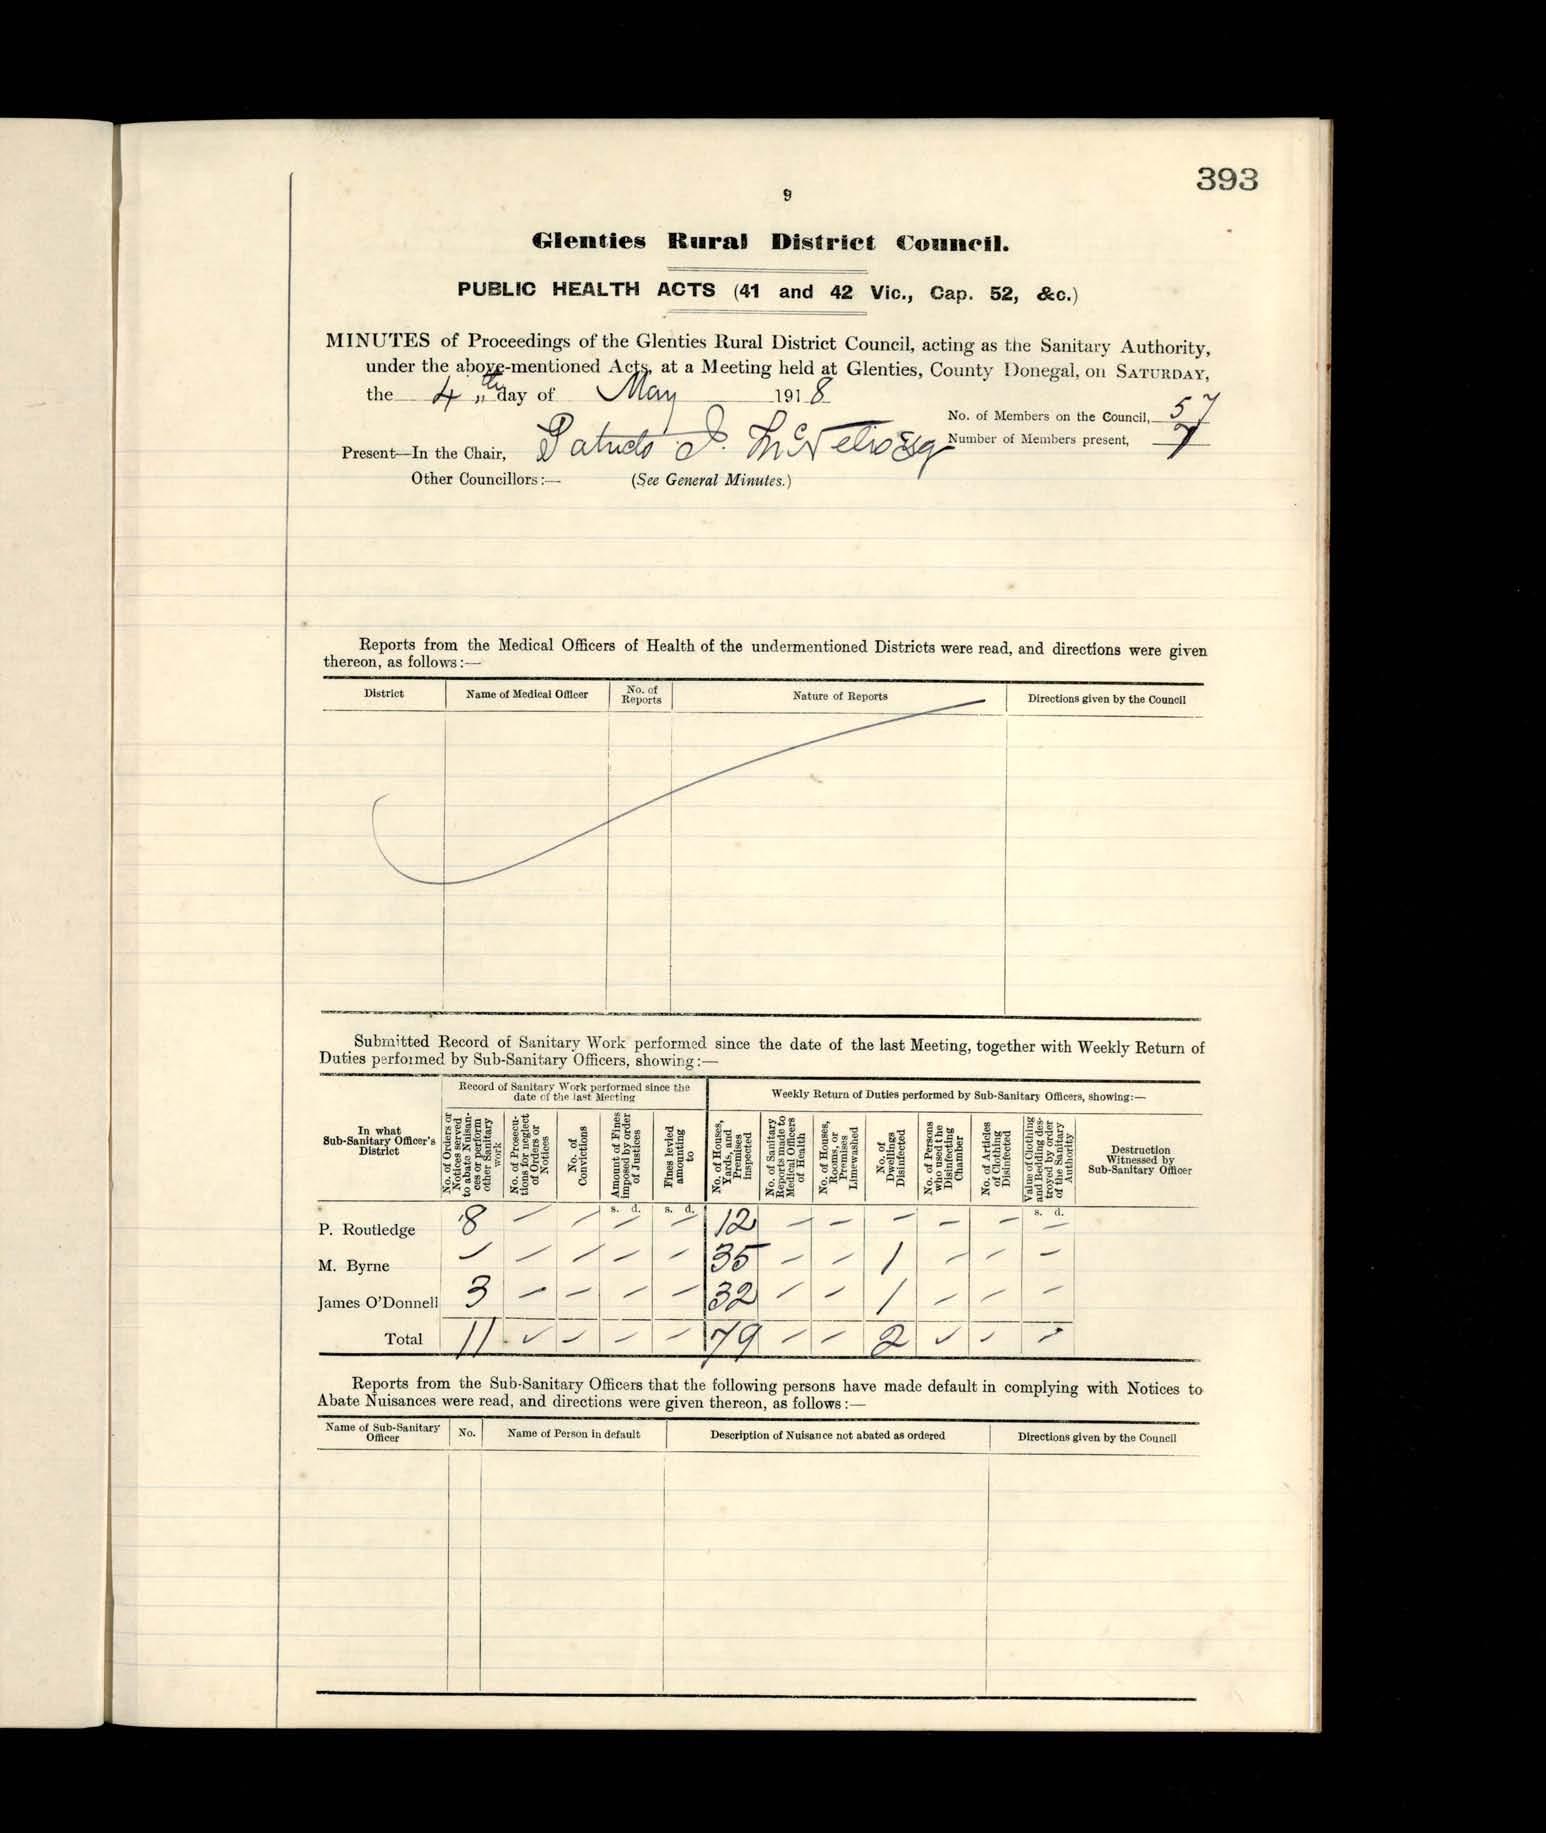 393
9
Glenties Rural District Council.
PUBLIC HEALTH ACTS (41 and 42 Vic., Cap. 52, &c.)
MINUTES of Proceedings of the Glenties Rural District Council, acting as the Sanitary Authority,
under the above-mentioned Acts, at a Meeting held at Glenties, County Donegal, on SATURDAY,
the 4th day of May 1918
No. of Members on the Council, 57
Number of Members present, 7
Present—In the Chair, Esq
Other Councillors:— (See General Minutes.)
Reports from the Medical Officers of Health of the undermentioned Districts were read, and directions were given
thereon, as follows:—
District Name of Medical Officer No. of Reports Nature of Reports Directions given by the Council
Submitted Record of Sanitary Work performed since the date of the last Meeting, together with Weekly Return of
Duties performed by Sub-Sanitary Officers, showing:—
Record of Sanitary Work performed since the date of the last Meeting
Weekly Return of Duties performed by Sub-Sanitary Officers, showing:—
In what Sub-Sanitary Officer's District
No. of Orders or Notices served to abate Nuisan-ces or perform other Sanitary work
No. of Prosecu-tions for neglect of Orders or Notices
No. of Convictions
Amount of Fines imposed by order of Justices
Fines levied amounting to
No. of Houses, Yards, and Premises inspected
No. of Sanitary Reports made to Medical Officers of Health
No. of Houses, Rooms, or Premises Limewashed
No. of Dwellings Disinfected
No. of Persons who used the Disinfecting Chamber
No. of Articles of Clothing Disinfected
Value of Clothing and Bedding des-troyed by order of the Sanitary Authority
Destruction Witnessed by Sub-Sanitary Officer
s. d. s. d. s. d.
P. Routledge 8 – – – – 12 – – – – – –
M. Byrne – – – – – 35 – – 1 – – –
James O'Donnell 3 – – – – 32 – – 1 – – –
Total 11 – – – – 79 – – 2 – – –
Reports from the Sub-Sanitary Officers that the following persons have made default in complying with Notices to
Abate Nuisances were read, and directions were given thereon, as follows:—
Name of Sub-Sanitary Officer No. Name of Person in default Description of Nuisance not abated as ordered Directions given by the Council